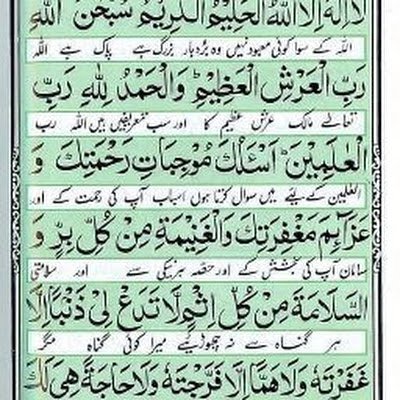 لَآ اِلٰهَ اِلَّا اللّٰهُ الْحَلِيْمُ الْكَرِيْمُ سُبْحٰنَ اللّٰهِ
اللہ کے سوا کوئی معبود نہیں وہ بردبار بزرگ ہے پاک ہے اللہ
رَبِّ الْعَرْشِ الْعَظِيْمِ ط وَالْحَمْدُ لِلّٰهِ رَبِّ
تعالے مالک عرش عظیم کا اور سب تعریفیں ہیں اللہ رب
الْعٰلَمِيْنَ ط اَسْئَلُكَ مُوْجِبَاتِ رَحْمَتِكَ وَ
العٰلمین کے لیئے میں سوال کرتا ہوں اسباب آپ کی رحمت کے اور
عَزَآئِمَ مَغْفِرَتِكَ وَالْغَنِيْمَةَ مِنْ كُلِّ بِرٍّ وَ
سامان آپ کی بخشش کے اور حصّہ ہر نیکی سے اور سلامتی
السَّلَامَةَ مِنْ كُلِّ اِثْمٍ لَّا تَدَعْ لِيْ ذَنْبًا اِلَّا
ہر گناہ سے نہ چھوڑئیے میرا کوئی گناہ مگر
غَفَرْتَهٗ وَلَا هَمًّا اِلَّا فَرَّجْتَهٗ وَلَا حَاجَةً هِيَ لَكَ